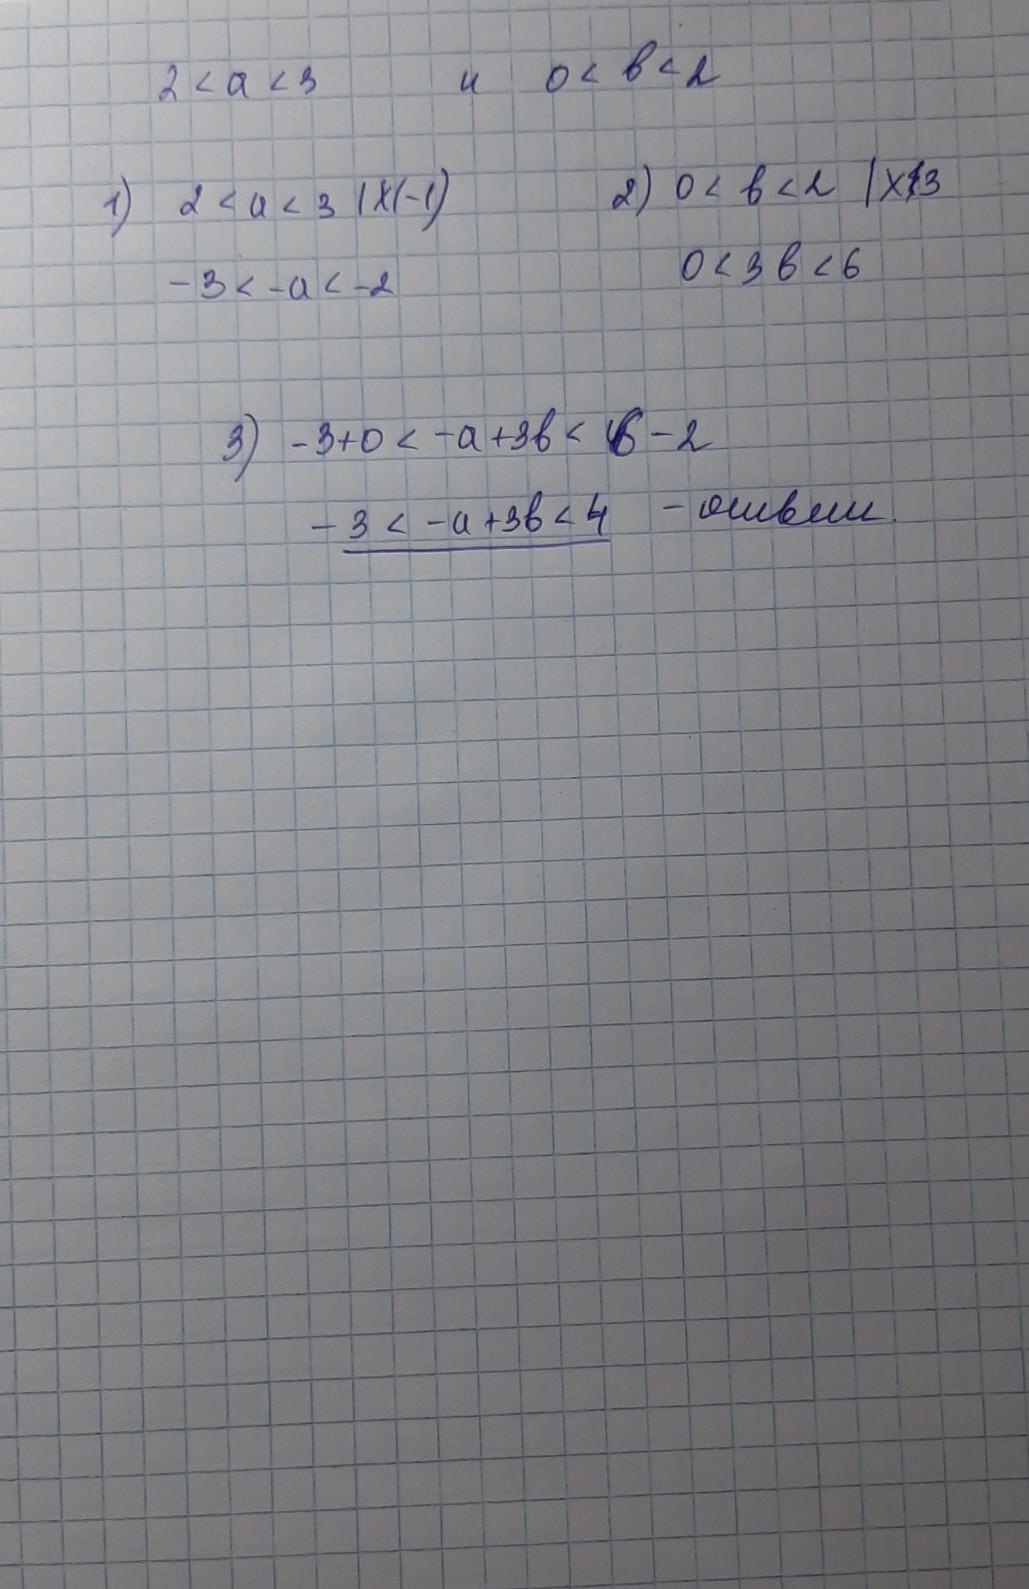 2 < a < 3 и 0 < b < 2
1) 2 < a < 3 |х(-1) 2) 0 < b < 2 |х3
-3 < -a < -2 0 < 3b < 6
3) -3+0 < -a+3b < 6-2
-3 < -a+3b < 4 - ответ.